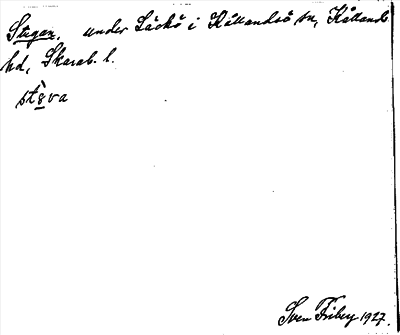 Stugan, under Läckö i Kållandsö sn, Kållands
hd, Skarab. l.
stòva
Sven Friberg 1927.